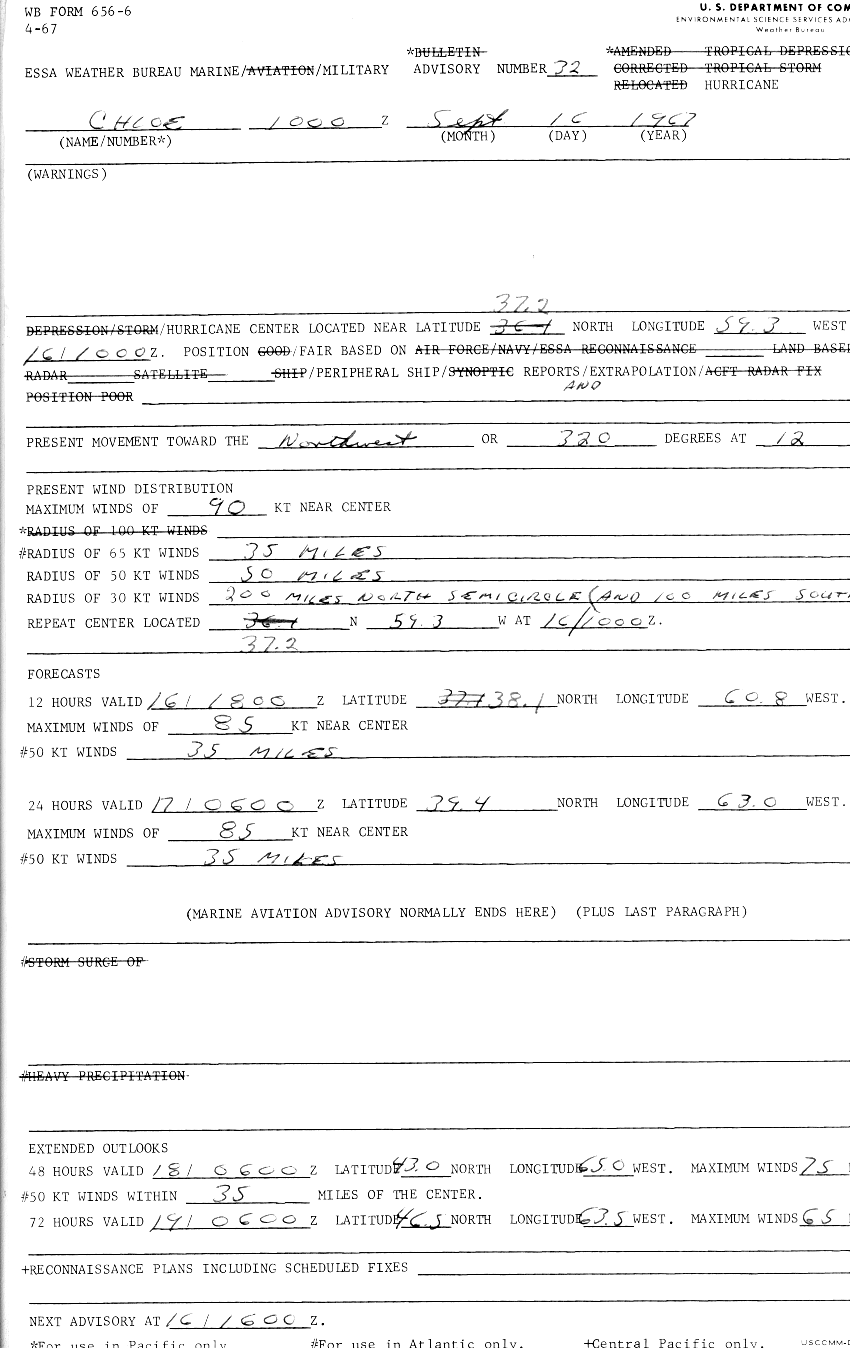 WB FORM 656-6
4-67
U. S. DEPARTMENT OF COM
ENVIRONMENTAL SCIENCE SERVICES AD
Weather Bureau
*BULLETIN *AMENDED TROPICAL DEPRESSIO
ESSA WEATHER BUREAU MARINE/AVIATION/MILITARY ADVISORY NUMBER 32 CORRECTED TROPICAL STORM
RELOCATED HURRICANE
CHLOE 1000 Z Sept 16 1967
(NAME/NUMBER*) (MONTH) (DAY) (YEAR)
(WARNINGS)
37.2
DEPRESSION/STORM/HURRICANE CENTER LOCATED NEAR LATITUDE 36.1 NORTH LONGITUDE 59.3 WEST
16/1000Z. POSITION GOOD/FAIR BASED ON AIR FORCE/NAVY/ESSA RECONNAISSANCE LAND BASE
RADAR SATELLITE SHIP/PERIPHERAL SHIP/SYNOPTIC REPORTS/EXTRAPOLATION/ACFT RADAR FIX
AND
POSITION POOR
PRESENT MOVEMENT TOWARD THE Northwest OR 320 DEGREES AT 12
PRESENT WIND DISTRIBUTION
MAXIMUM WINDS OF 90 KT NEAR CENTER
*RADIUS OF 100 KT WINDS
#RADIUS OF 65 KT WINDS 35 MILES
RADIUS OF 50 KT WINDS 50 MILES
RADIUS OF 30 KT WINDS 200 MILES NORTH SEMICIRCLE (AND 100 MILES SOUTH
REPEAT CENTER LOCATED 36.1 N 59.3 W AT 16/1000Z.
37.2
FORECASTS
12 HOURS VALID 16/1800 Z LATITUDE 38.1 NORTH LONGITUDE 60.8 WEST.
MAXIMUM WINDS OF 85 KT NEAR CENTER
#50 KT WINDS 35 MILES
24 HOURS VALID 17/0600 Z LATITUDE 39.4 NORTH LONGITUDE 63.0 WEST.
MAXIMUM WINDS OF 85 KT NEAR CENTER
#50 KT WINDS 35 MILES
(MARINE AVIATION ADVISORY NORMALLY ENDS HERE) (PLUS LAST PARAGRAPH)
#STORM SURGE OF
#HEAVY PRECIPITATION
EXTENDED OUTLOOKS
48 HOURS VALID 18/0600 Z LATITUDE 43.0 NORTH LONGITUDE 65.0 WEST. MAXIMUM WINDS 75
#50 KT WINDS WITHIN 35 MILES OF THE CENTER.
72 HOURS VALID 19/0600 Z LATITUDE 46.5 NORTH LONGITUDE 63.5 WEST. MAXIMUM WINDS 65
+RECONNAISSANCE PLANS INCLUDING SCHEDULED FIXES
NEXT ADVISORY AT 16/1600 Z.
*For use in Pacific only #For use in Atlantic only. +Central Pacific only. USCOMM-D